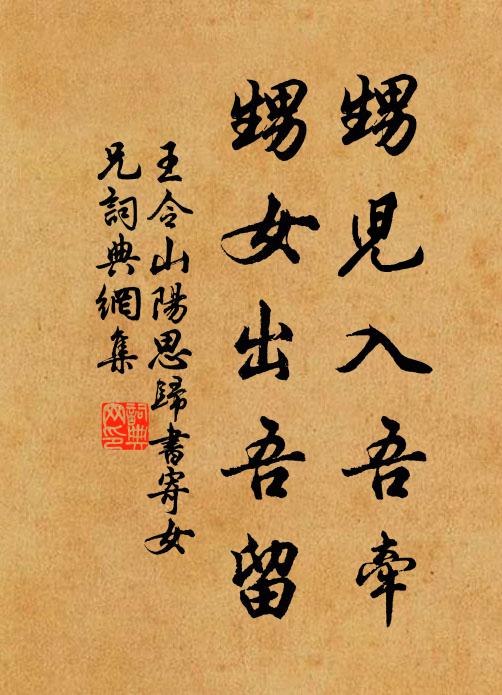 甥児入吾牽
甥女出吾留
王令山陽思歸書寄女
兄詞典網集
詞典
网印